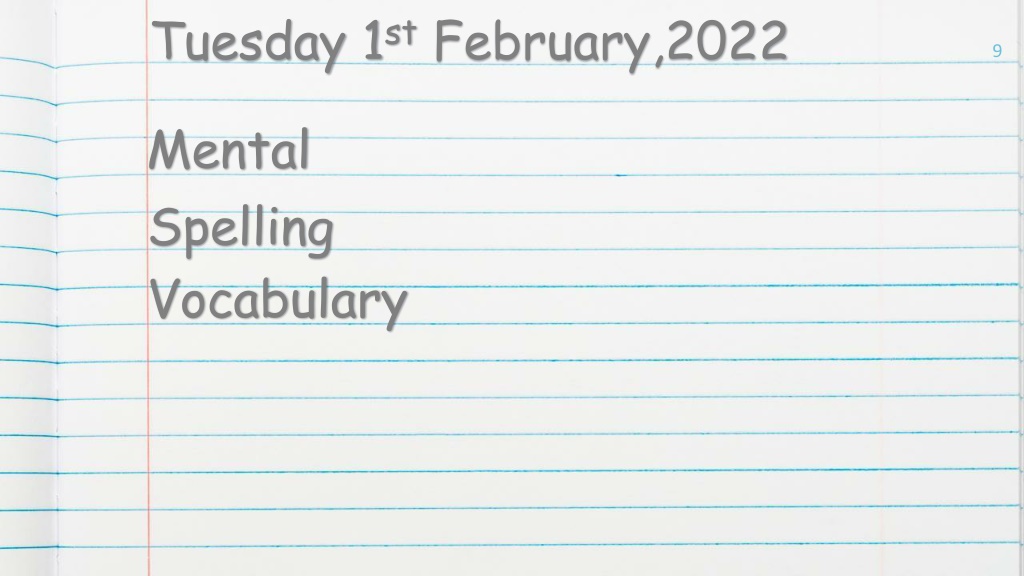 Tuesday 1st February,2022
9
Mental
Spelling
Vocabulary